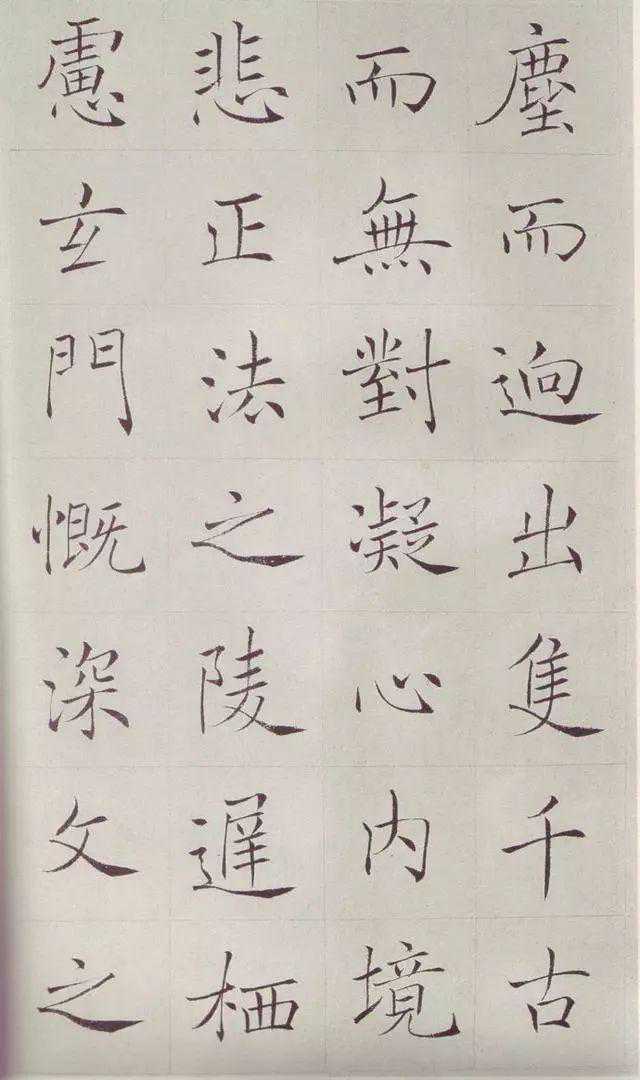 塵而逈出隻千古
而無對凝心内境
悲正法之陵遲栖
慮玄門慨深文之